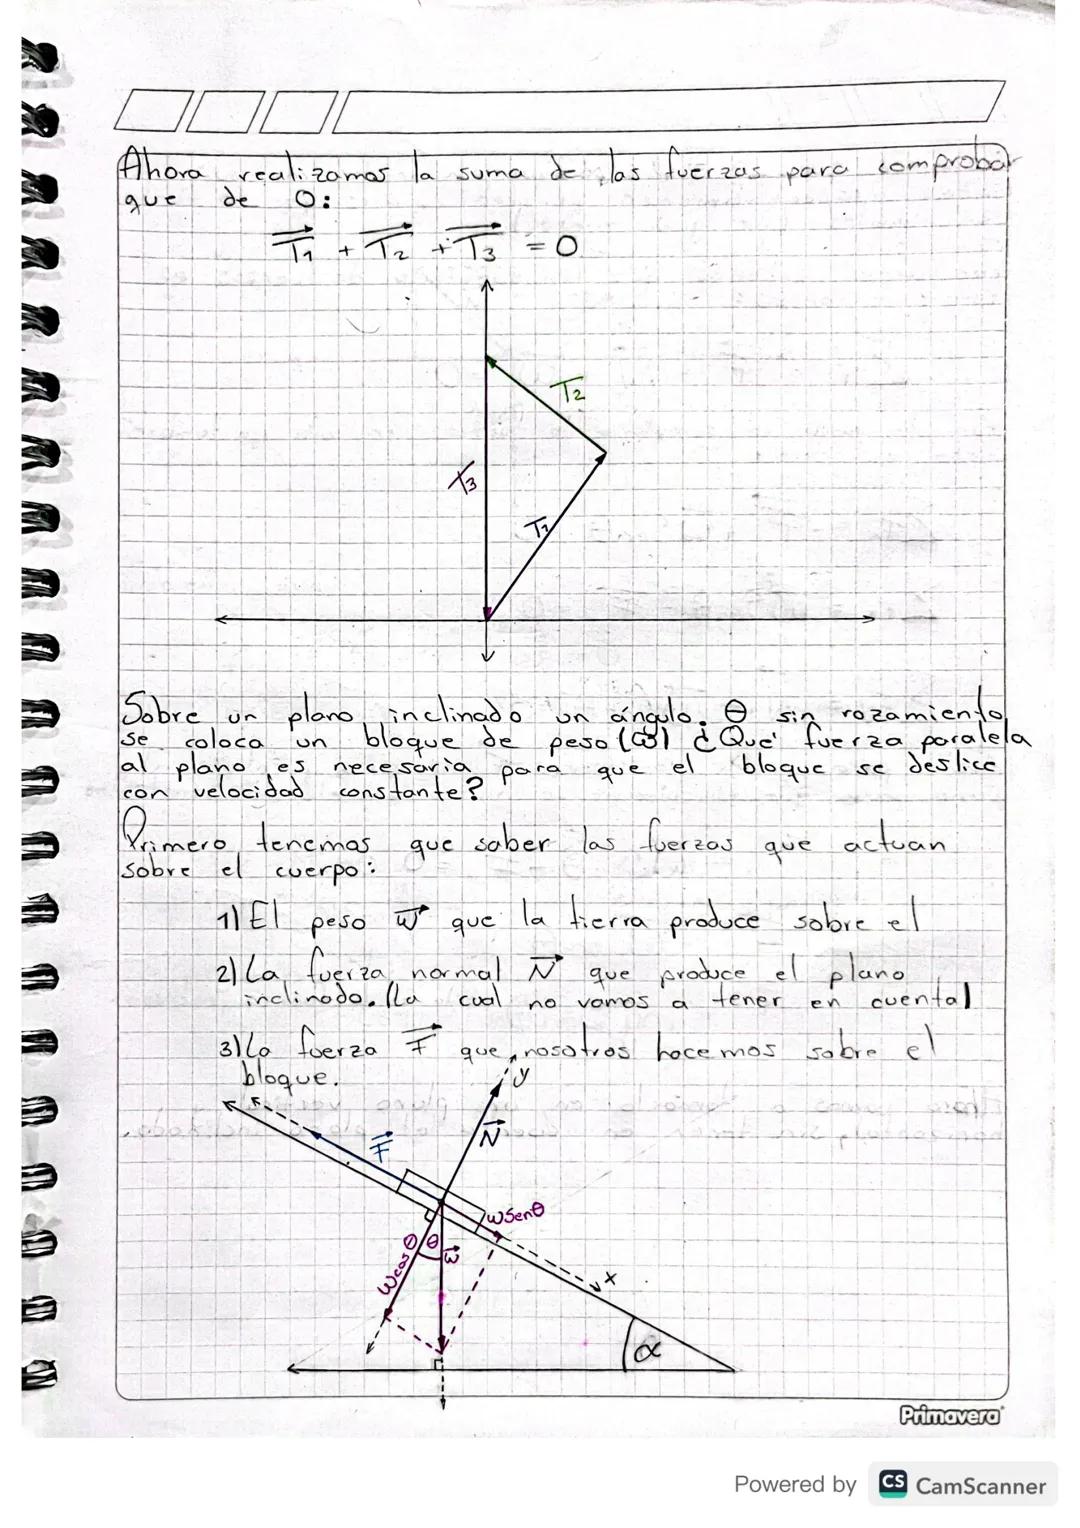 Ahora realizamos la suma de las fuerzas para comprobar
que de 0:
T1 + T2 + T3 = 0
T2
T3
T1
Sobre un plano inclinado un ángulo. θ sin rozamiento
se coloca un bloque de peso (ω) ¿Qué fuerza paralela
al plano es necesaria para que el bloque se deslice
con velocidad constante?
Primero tenemos que saber las fuerzas que actuan
sobre el cuerpo:
1) El peso w que la tierra produce sobre el
2) La fuerza normal N que produce el plano
inclinado. (La cual no vamos a tener en cuenta)
3) La fuerza F que nosotros hacemos sobre el
bloque.
y
N
F
wSenθ
Wcosθ
θ
w
x
α
Primavera
Powered by CS CamScanner